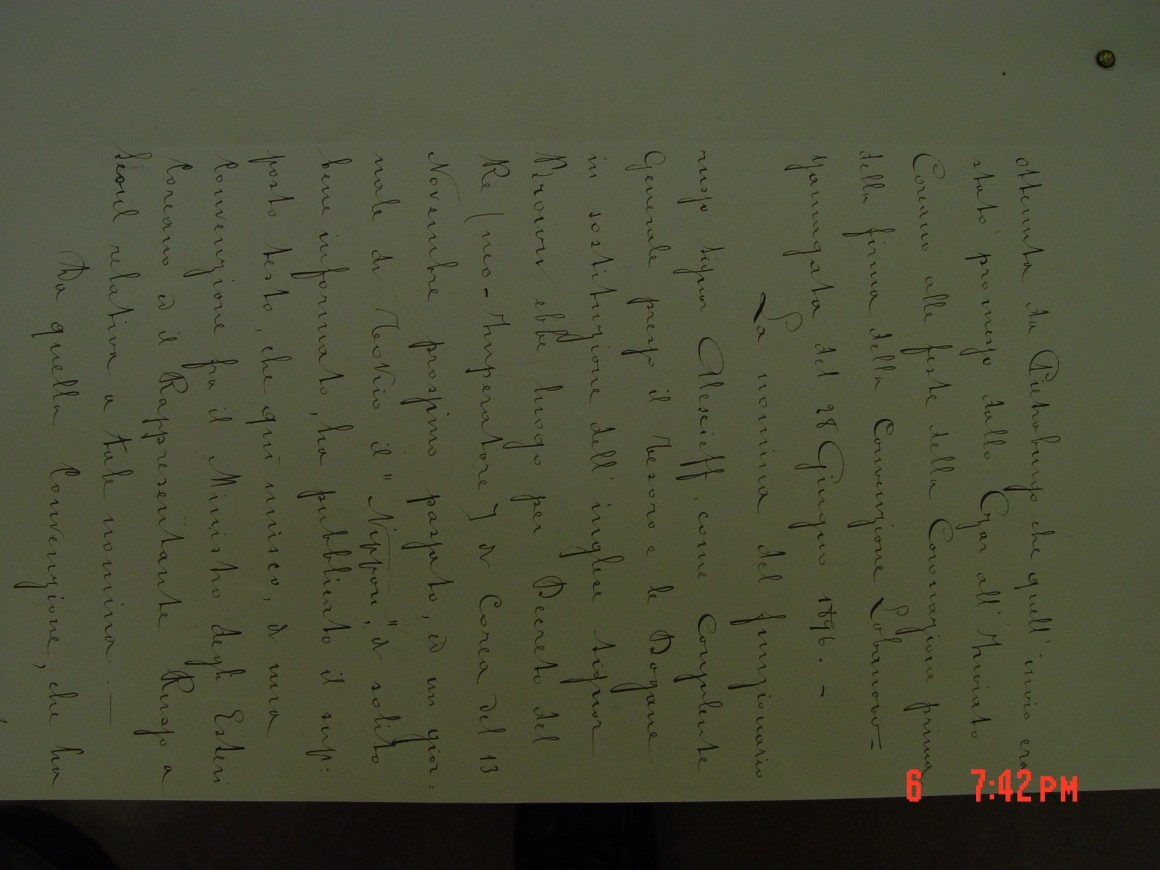 ottenuta da Pietroburgo che quell'invio era
stato promesso dallo Czar all'Inviato
Coreano alle feste della Coronazione prima
della firma della Convenzione Lobanow=
Yamagata del 28 Giugno 1896. -
La nomina del funzionario
russo signor Alexieff, come Consulente
Generale presso il Tesoro e le Dogane
in sostituzione dell'inglese signor
Brown ebbe luogo per Decreto del
Re (neo-Imperatore) di Corea del 13
Novembre prossimo passato, ed un gior:
nale di Tokio il "Nippon", di solito
bene informato, ha pubblicato il sup:
posto testo, che qui unisco, di una
Convenzione fra il Ministro degli Esteri
Coreano ed il Rappresentante Russo a
Seoul relativa a tale nomina. —
Da quella Convenzione, che ha
6 7:42 PM